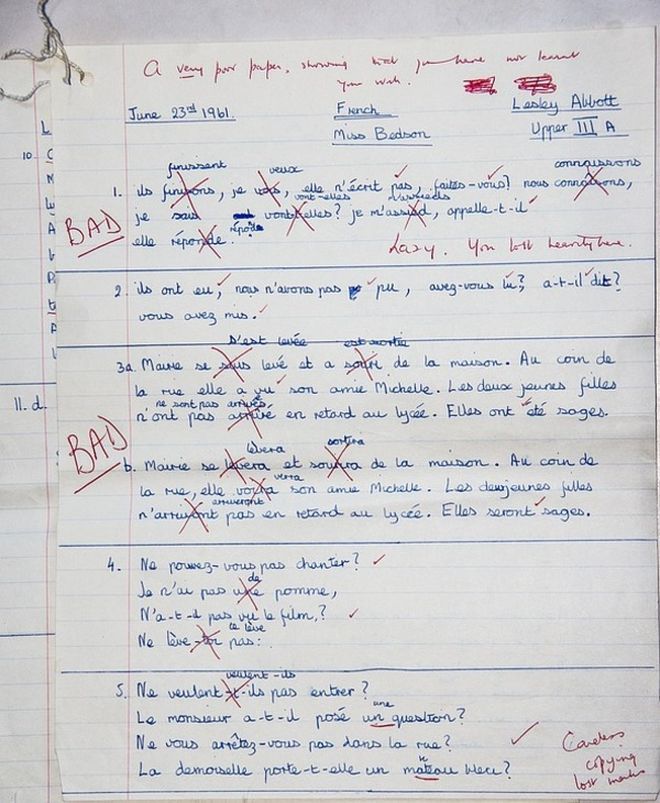 A very poor paper, showing that you have not learnt
your work.
June 23rd 1961. French Lesley Abbott
Miss Bedson Upper III A
finissent veux connaissons
1. ils finirons, je vous, elle n'écrit pas, faites-vous? nous connâitons,
vont-elles m'assieds
je sais vont-elles? je m'assied, appelle-t-il
répond
elle réponde.
BAD
Lazy. You lost heavily here.
2. ils ont eu, nous n'avons pas pu, avez-vous lu? a-t-il dit?
vous avez mis.
s'est levée est sortie
3a. Mairie se suis levé et a sorti de la maison. Au coin de
la rue elle a vu son amie Michelle. Les deux jeunes filles
ne sont pas arrivées
n'ont pas arrivé en retard au lycée. Elles ont été sages.
BAD
lèvera sortira
b. Mairie se levera et soutira de la maison. Au coin de
verra
la rue, elle voira son amie Michelle. Les deux jeunes filles
arriveront
n'arrivont pas en retard au lycée. Elles seront sages.
4. Ne pouvez-vous pas chanter?
de
Je n'ai pas une pomme,
N'a-t-il pas vu le film?
te lève
Ne lève-toi pas:
veulent-ils
5. Ne veulent-t-ils pas entrer?
une
Le monsieur a-t-il posé un question?
Ne vous arrêtez-vous pas dans la rue?
n
La demoiselle porte-t-elle un mateau bleu?
Careless
copying
lost marks
10.
11. d.